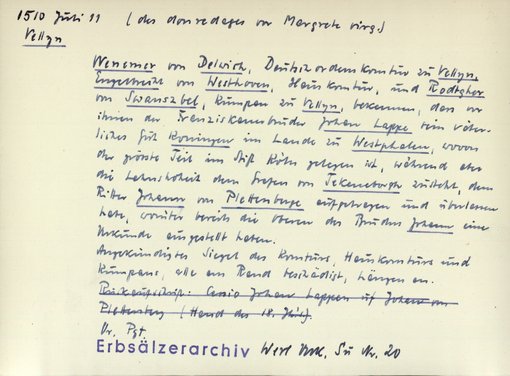 1510 Juli 11 (des donredages vor Margrete virg.)
Vellyn
Wenemer von Delwich, Deutschordenskomtur zu Vellyn,
Engelbrecht von Westhoven, Hauskomtur, und Rodtgher
von Swanszbel, Kumpan zu Vellyn, bekennen, dass vor
ihnen der Franziskanerbruder Johan Lappe sein väter-
liches Gut Koningen im Lande zu Westphalen, wovon
der grösste Teil im Stift Köln gelegen ist, während aber
die Lehnshoheit dem Grafen von Tekeneborgh zusteht, dem
Ritter Johann von Plettenberge aufgetragen und überlassen
habe, worüber bereits die Oberen des Bruders Johann eine
Urkunde ausgestellt haben.
Angekündigtes Siegel des Komturs, Hauskomturs und
Kumpans, alle am Rand beschädigt, hängen an.
Rückaufschrift: Cessio Johan Lappen uf Johan von
Plettenberg (Hand des 18. Jhdt).
Or. Pgt.
Erbsälzerarchiv Werl Urk. Su Nr. 20